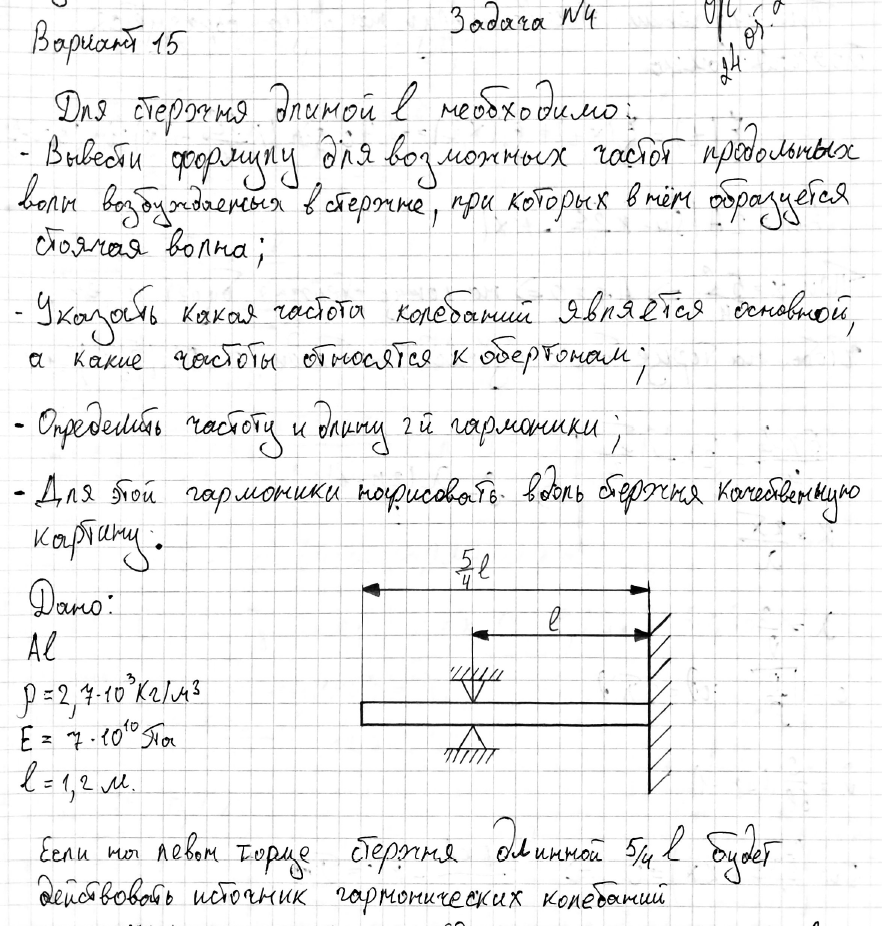 Задача №4
Вариант 15
24
Для стержня длиной l необходимо:
- Вывести формулу для возможных частот продольных
волн возбуждаемых в стержне, при которых в нём образуется
стоячая волна;
- Указать какая частота колебаний является основной,
а какие частоты относятся к обертонам;
- Определить частоту и длину 2й гармоники;
- Для этой гармоники нарисовать вдоль стержня качественную
картину.
5/4 l
l
Дано:
Al
ρ = 2,7·10³ Кг/м³
E = 7·10¹⁰ Па
l = 1,2 м.
Если на левом торце стержня длинной 5/4 l будет
действовать источник гармонических колебаний